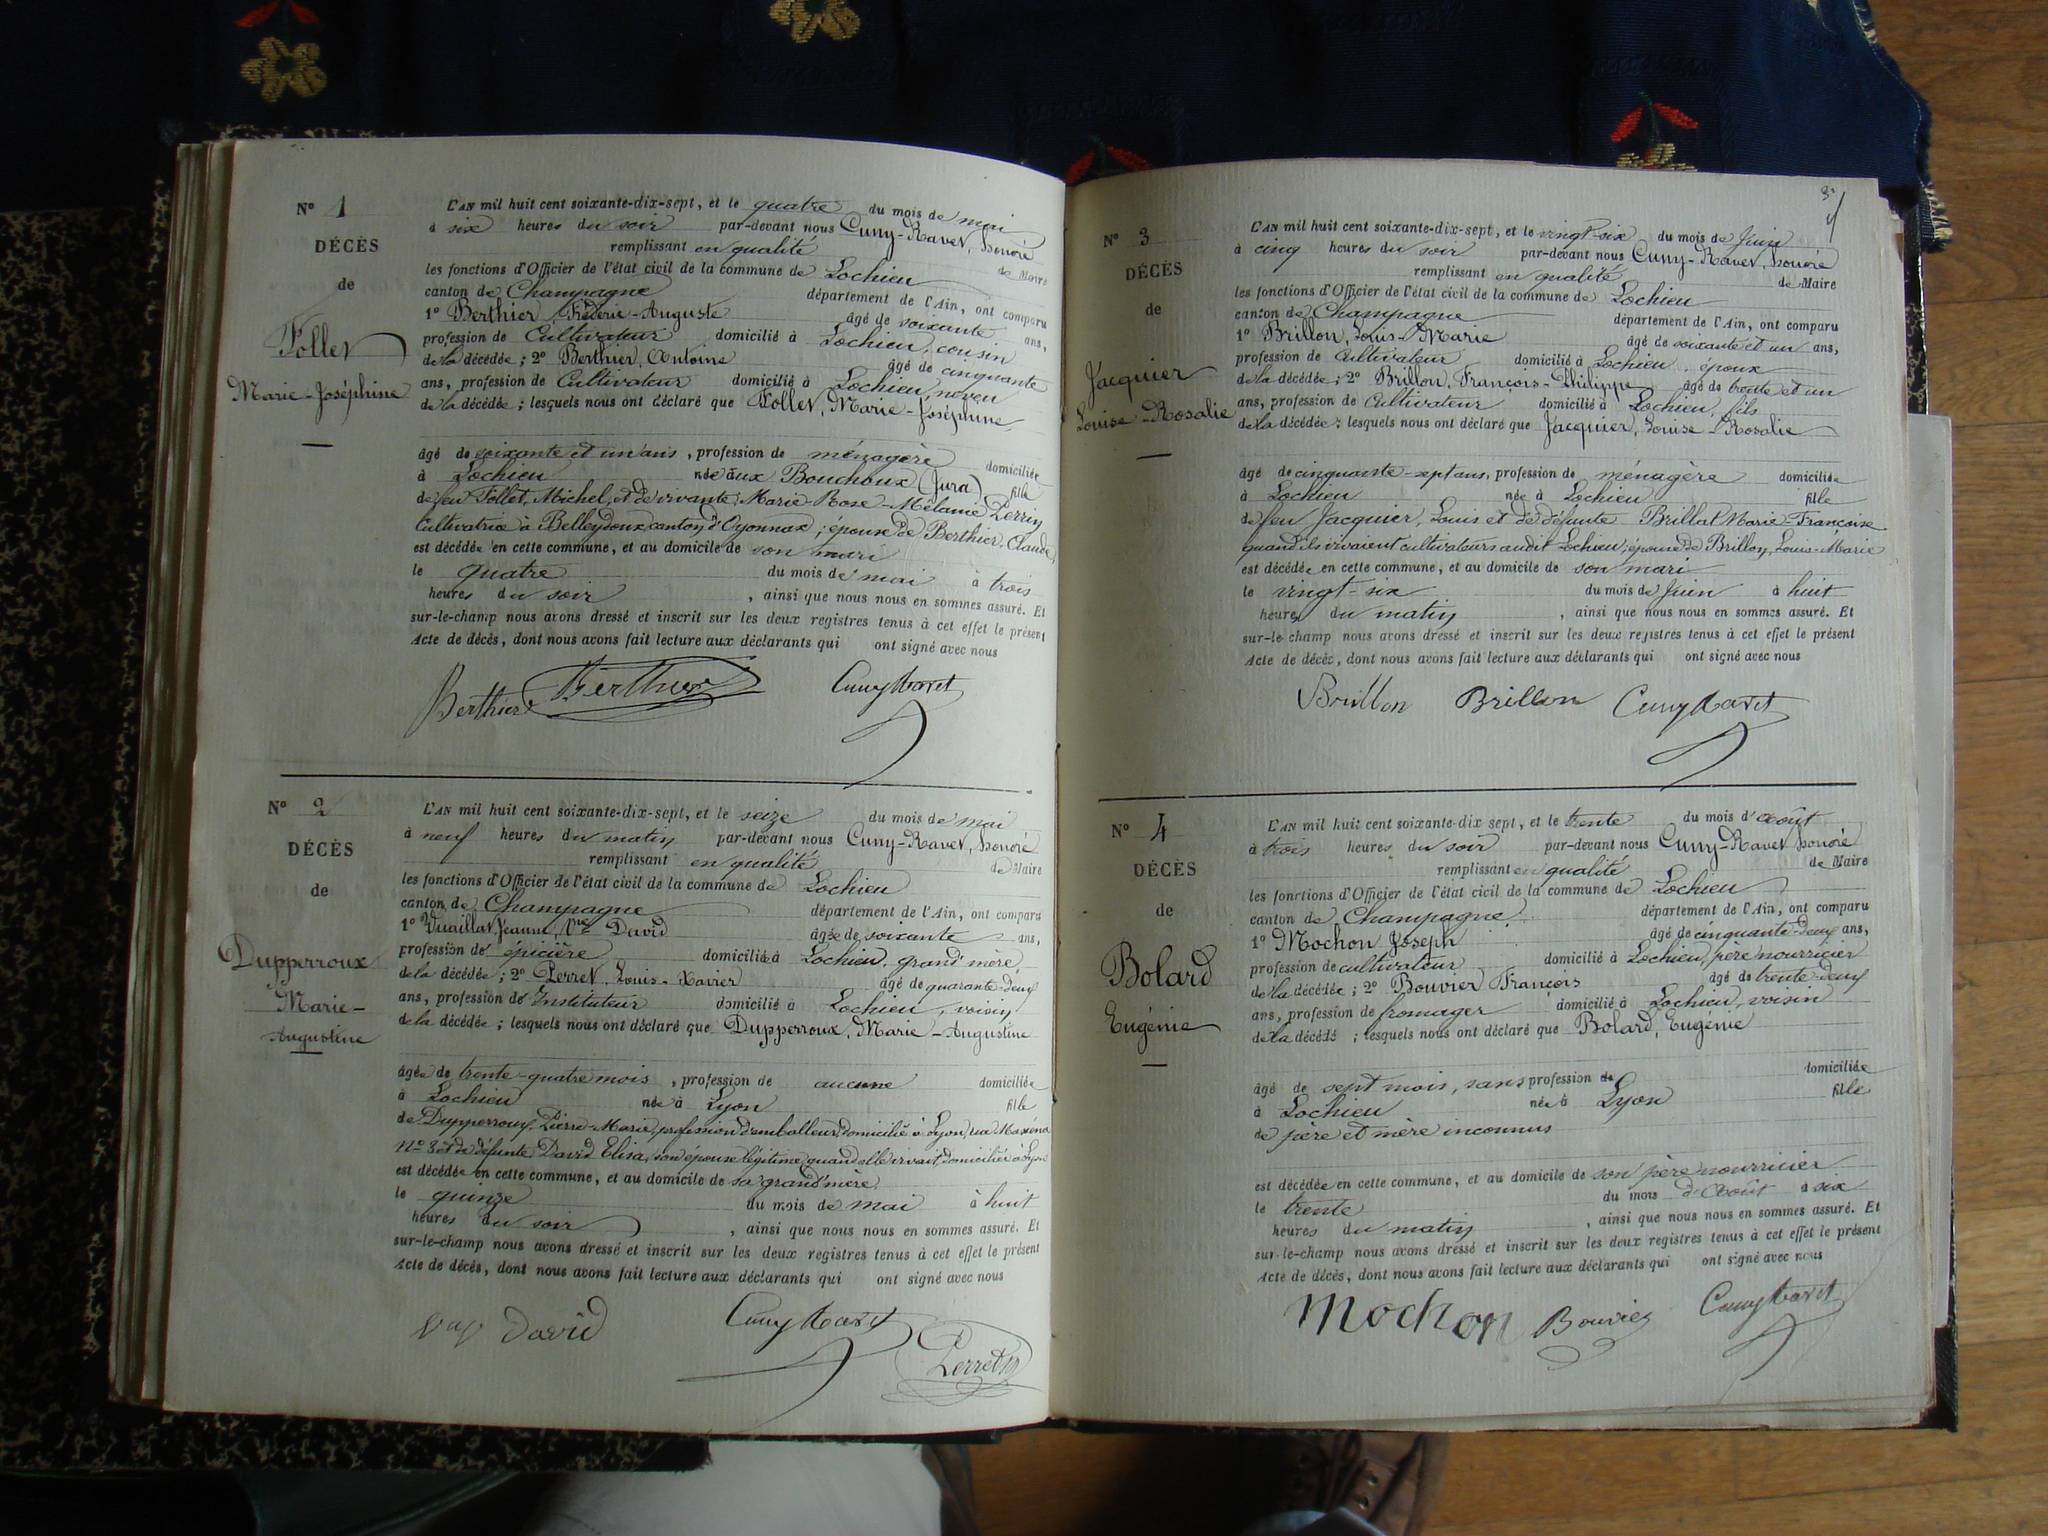 N° 1
DÉCÈS
de
Follet
Marie-Joséphine
L'AN mil huit cent soixante-dix-sept, et le quatre du mois de mai
à six heures du soir par-devant nous Cuny-Ravet, honoré
remplissant en qualité de Maire
les fonctions d'Officier de l'état civil de la commune de Lochieu
canton de Champagne département de l'Ain, ont comparu
1° Berthier Frédéric-Auguste âgé de soixante ans,
profession de Cultivateur domicilié à Lochieu, cousin
de la décédée ; 2° Berthier, Antoine âgé de cinquante
ans, profession de Cultivateur domicilié à Lochieu, neveu
de la décédée ; lesquels nous ont déclaré que Follet, Marie-Joséphine,
âgé de soixante et un ans, profession de ménagère domiciliée
à Lochieu née aux Bouchoux (Jura) fille
de feu Follet, Michel, et de vivante Marie-Rose-Mélanie Perrin
Cultivatrice à Belleydoux canton d'Oyonnax ; épouse de Berthier, Claude,
est décédée en cette commune, et au domicile de son mari
le quatre du mois de mai à trois
heures du soir , ainsi que nous nous en sommes assuré. Et
sur-le-champ nous avons dressé et inscrit sur les deux registres tenus à cet effet le présent
Acte de décès, dont nous avons fait lecture aux déclarants qui ont signé avec nous
Berthier Berthier Cuny Ravet
N° 2
DÉCÈS
de
Dupperroux
Marie-
Augustine
L'AN mil huit cent soixante-dix-sept, et le seize du mois de mai
à neuf heures du matin par-devant nous Cuny-Ravet, honoré
remplissant en qualité de Maire
les fonctions d'Officier de l'état civil de la commune de Lochieu
canton de Champagne département de l'Ain, ont comparu
1° Vuaillat Jeanne, Vve David âgée de soixante ans,
profession de épicière domiciliée à Lochieu, grand'mère
de la décédée ; 2° Perret, Louis-Xavier âgé de quarante-deux
ans, profession de Instituteur domicilié à Lochieu, voisin
de la décédée ; lesquels nous ont déclaré que Dupperroux, Marie-Augustine
âgée de trente-quatre mois , profession de aucune domiciliée
à Lochieu née à Lyon fille
de Dupperroux, Pierre-Marie, profession d'emballeur, domicilié à Lyon, rue Masséna
N° 8 et de défunte David Elisa, son épouse légitime quand elle vivait, domiciliée à Lyon
est décédée en cette commune, et au domicile de sa grand'mère
le quinze du mois de mai à huit
heures du soir , ainsi que nous nous en sommes assuré. Et
sur-le-champ nous avons dressé et inscrit sur les deux registres tenus à cet effet le présent
Acte de décès, dont nous avons fait lecture aux déclarants qui ont signé avec nous
David Cuny Ravet
Perret
N° 3
DÉCÈS
de
Jacquier
Louise-Rosalie
L'AN mil huit cent soixante-dix-sept, et le vingt-six du mois de Juin
à cinq heures du soir par-devant nous Cuny-Ravet, honoré
remplissant en qualité de Maire
les fonctions d'Officier de l'état civil de la commune de Lochieu
canton de Champagne département de l'Ain, ont comparu
1° Brillon, Louis-Marie âgé de soixante et un ans,
profession de Cultivateur domicilié à Lochieu, époux
de la décédée ; 2° Brillon, François-Philippe âgé de trente et un
ans, profession de Cultivateur domicilié à Lochieu, fils
de la décédée ; lesquels nous ont déclaré que Jacquier, Louise-Rosalie
âgé de cinquante-sept ans, profession de ménagère domiciliée
à Lochieu née à Lochieu fille
de feu Jacquier, Louis et de défunte Brillat Marie-Françoise
quand ils vivaient cultivateurs audit Lochieu ; épouse de Brillon, Louis-Marie
est décédée en cette commune, et au domicile de son mari
le vingt-six du mois de Juin à huit
heures du matin , ainsi que nous nous en sommes assuré. Et
sur-le-champ nous avons dressé et inscrit sur les deux registres tenus à cet effet le présent
Acte de décès, dont nous avons fait lecture aux déclarants qui ont signé avec nous
Brillon Brillon Cuny Ravet
N° 4
DÉCÈS
de
Bolard
Eugénie
L'AN mil huit cent soixante-dix sept, et le trente du mois d'Août
à trois heures du soir par-devant nous Cuny-Ravet honoré
remplissant en qualité de Maire
les fonctions d'Officier de l'état civil de la commune de Lochieu
canton de Champagne département de l'Ain, ont comparu
1° Mochon Joseph âgé de cinquante-deux ans,
profession de cultivateur domicilié à Lochieu, père nourricier
de la décédée ; 2° Bouvier François âgé de trente-deux
ans, profession de fromager domicilié à Lochieu, voisin
de la décédé ; lesquels nous ont déclaré que Bolard, Eugénie
âgé de sept mois, sans profession de domiciliée
à Lochieu née à Lyon fille
de père et mère inconnus
est décédée en cette commune, et au domicile de son père nourricier
le trente du mois d'Août à six
heures du matin , ainsi que nous nous en sommes assuré. Et
sur-le-champ nous avons dressé et inscrit sur les deux registres tenus à cet effet le présent
Acte de décès, dont nous avons fait lecture aux déclarants qui ont signé avec nous
Mochon Bouvier Cuny Ravet